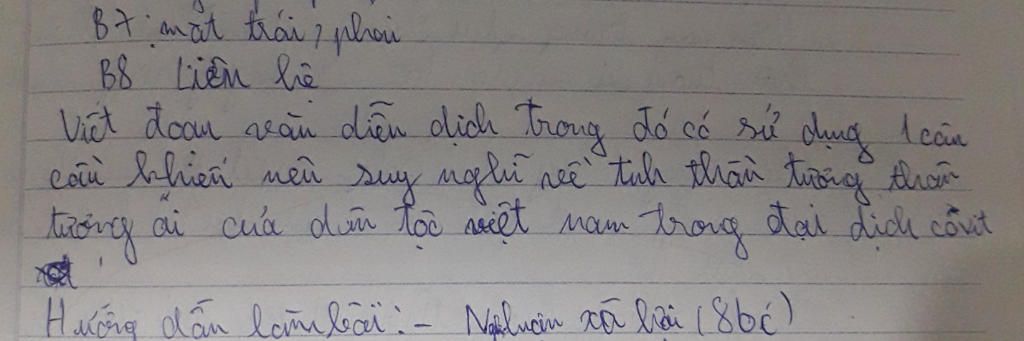 B7: mặt trái, phải
B8 Liên hệ
Viết đoạn văn diễn dịch trong đó có sử dụng 1 câu
cầu khiến nêu suy nghĩ về tinh thần tương thân
tương ái của dân tộc việt nam trong đại dịch côvit
Hướng dẫn làm bài: - Nghị luận xã hội (8 bc)